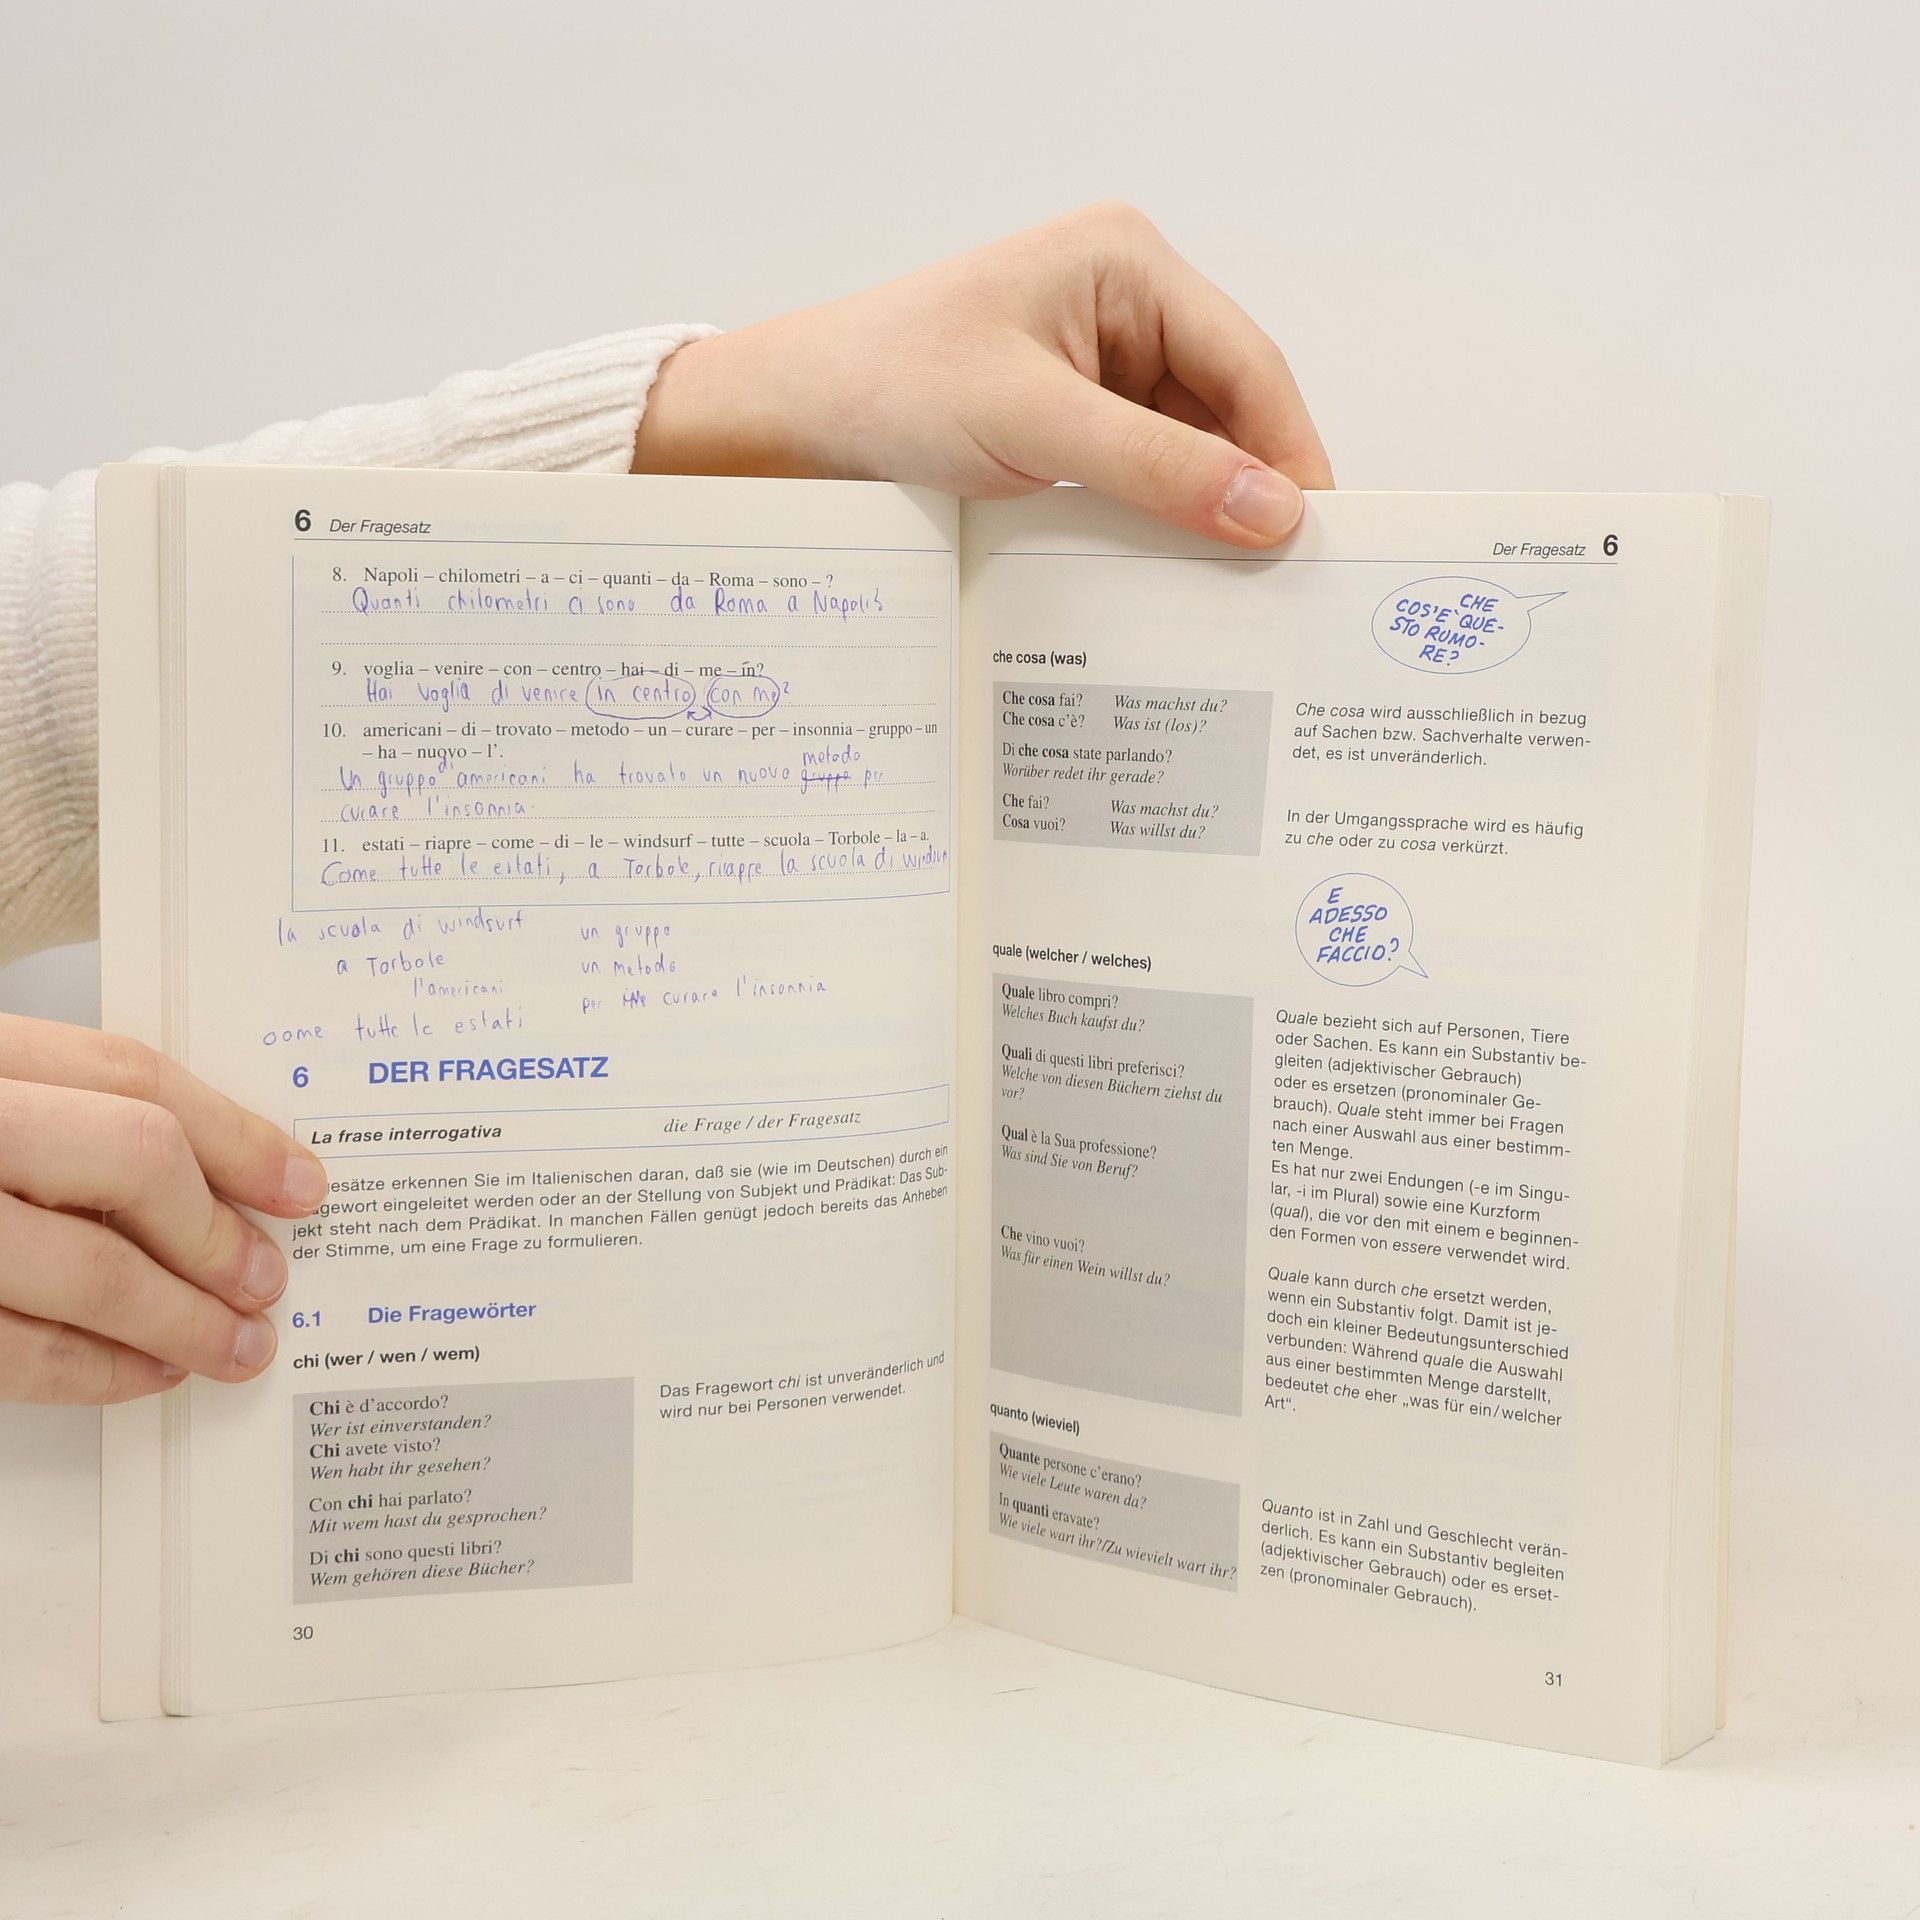 6 Der Fragesatz
8. Napoli – chilometri – a – ci – quanti – da – Roma – sono – ?
Quanti chilometri ci sono da Roma a Napoli?
9. voglia – venire – con – centro – hai – di – me – in?
Hai voglia di venire in centro con me?
10. americani – di – trovato – metodo – un – curare – per – insonnia – gruppo – un
– ha – nuovo – l'.
metodo
Un gruppo di americani ha trovato un nuovo gruppo per
curare l'insonnia.
11. estati – riapre – come – di – le – windsurf – tutte – scuola – Torbole – la – a.
Come tutte le estati, a Torbole, riapre la scuola di windsurf
la scuola di windsurf
a Torbole
l'americani
come tutte le estati
un gruppo
un metodo
per curare l'insonnia
6 DER FRAGESATZ
La frase interrogativa die Frage / der Fragesatz
esätze erkennen Sie im Italienischen daran, daß sie (wie im Deutschen) durch ein
gewort eingeleitet werden oder an der Stellung von Subjekt und Prädikat: Das Sub-
jekt steht nach dem Prädikat. In manchen Fällen genügt jedoch bereits das Anheben
der Stimme, um eine Frage zu formulieren.
6.1 Die Fragewörter
chi (wer / wen / wem)
Chi è d'accordo?
Wer ist einverstanden?
Chi avete visto?
Wen habt ihr gesehen?
Con chi hai parlato?
Mit wem hast du gesprochen?
Di chi sono questi libri?
Wem gehören diese Bücher?
Das Fragewort chi ist unveränderlich und
wird nur bei Personen verwendet.
30
Der Fragesatz 6
CHE
COS'E' QUE-
STO RUMO-
RE?
che cosa (was)
Che cosa fai? Was machst du?
Che cosa c'è? Was ist (los)?
Di che cosa state parlando?
Worüber redet ihr gerade?
Che fai? Was machst du?
Cosa vuoi? Was willst du?
Che cosa wird ausschließlich in bezug
auf Sachen bzw. Sachverhalte verwen-
det, es ist unveränderlich.
In der Umgangssprache wird es häufig
zu che oder zu cosa verkürzt.
E
ADESSO
CHE
FACCIO?
quale (welcher / welches)
Quale libro compri?
Welches Buch kaufst du?
Quali di questi libri preferisci?
Welche von diesen Büchern ziehst du
vor?
Qual è la Sua professione?
Was sind Sie von Beruf?
Che vino vuoi?
Was für einen Wein willst du?
Quale bezieht sich auf Personen, Tiere
oder Sachen. Es kann ein Substantiv be-
gleiten (adjektivischer Gebrauch)
oder es ersetzen (pronominaler Ge-
brauch). Quale steht immer bei Fragen
nach einer Auswahl aus einer bestimm-
ten Menge.
Es hat nur zwei Endungen (-e im Singu-
lar, -i im Plural) sowie eine Kurzform
(qual), die vor den mit einem e beginnen-
den Formen von essere verwendet wird.
Quale kann durch che ersetzt werden,
wenn ein Substantiv folgt. Damit ist je-
doch ein kleiner Bedeutungsunterschied
verbunden: Während quale die Auswahl
aus einer bestimmten Menge darstellt,
bedeutet che eher „was für ein/welcher
Art“.
quanto (wieviel)
Quante persone c'erano?
Wie viele Leute waren da?
In quanti eravate?
Wie viele wart ihr?/Zu wievielt wart ihr?
Quanto ist in Zahl und Geschlecht verän-
derlich. Es kann ein Substantiv begleiten
(adjektivischer Gebrauch) oder es erset-
zen (pronominaler Gebrauch).
31